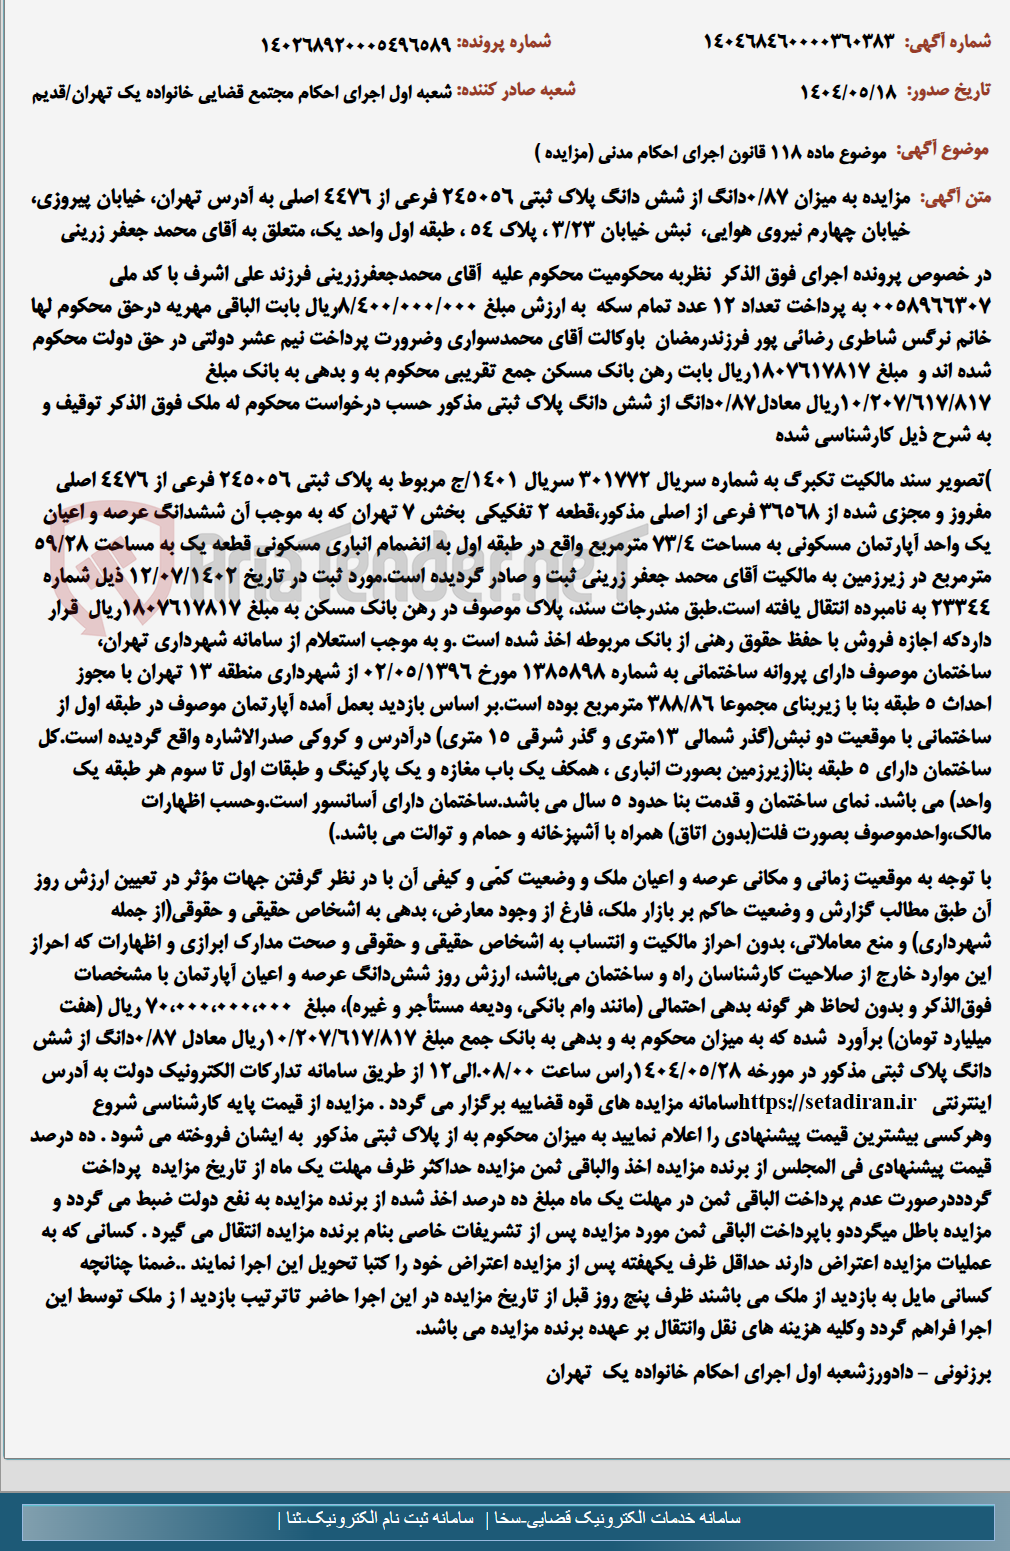 شماره آگهی: ۱۴۰۴۶۸۴۶۰۰۰۰۳۶۰۳۸۳ شماره پرونده: ۱۴۰۲۶۸۹۲۰۰۰۵۴۹۶۵۸۹
تاریخ صدور: ۱۴۰۴/۰۵/۱۸ شعبه صادر کننده: شعبه اول اجرای احکام مجتمع قضایی خانواده یک تهران/قدیم
موضوع آگهی: موضوع ماده ۱۱۸ قانون اجرای احکام مدنی (مزایده )
متن آگهی: مزایده به میزان ۰/۸۷دانگ از شش دانگ پلاک ثبتی ۲۴۵۰۵۶ فرعی از ۴۴۷۶ اصلی به آدرس تهران، خیابان پیروزی،
خیابان چهارم نیروی هوایی، نبش خیابان ۳/۲۳ ، پلاک ۵۴ ، طبقه اول واحد یک، متعلق به آقای محمد جعفر زرینی
در خصوص پرونده اجرای فوق الذکر نظربه محکومیت محکوم علیه آقای محمدجعفرزرینی فرزند علی اشرف با کد ملی
۰۰۵۸۹۶۶۳۰۷ به پرداخت تعداد ۱۲ عدد تمام سکه به ارزش مبلغ ۸/۴۰۰/۰۰۰/۰۰۰ریال بابت الباقی مهریه درحق محکوم لها
خانم نرگس شاطری رضائی پور فرزندرمضان باوکالت آقای محمدسواری وضرورت پرداخت نیم عشر دولتی در حق دولت محکوم
شده اند و مبلغ ۱۸۰۷۶۱۷۸۱۷ریال بابت رهن بانک مسکن جمع تقریبی محکوم به و بدهی به بانک مبلغ
۱۰/۲۰۷/۶۱۷/۸۱۷ریال معادل۰/۸۷دانگ از شش دانگ پلاک ثبتی مذکور حسب درخواست محکوم له ملک فوق الذکر توقیف و
به شرح ذیل کارشناسی شده
)تصویر سند مالکیت تکبرگ به شماره سریال ۳۰۱۷۷۲ سریال ۱۴۰۱/ج مربوط به پلاک ثبتی ۲۴۵۰۵۶ فرعی از ۴۴۷۶ اصلی
مفروز و مجزی شده از ۳۶۵۶۸ فرعی از اصلی مذکور،قطعه ۲ تفکیکی بخش ۷ تهران که به موجب آن ششدانگ عرصه و اعیان
یک واحد آپارتمان مسکونی به مساحت ۷۳/۴ مترمربع واقع در طبقه اول به انضمام انباری مسکونی قطعه یک به مساحت ۵۹/۲۸
مترمربع در زیرزمین به مالکیت آقای محمد جعفر زرینی ثبت و صادر گردیده است.مورد ثبت در تاریخ ۱۲/۰۷/۱۴۰۲ ذیل شماره
۲۳۳۴۴ به نامبرده انتقال یافته است.طبق مندرجات سند، پلاک موصوف در رهن بانک مسکن به مبلغ ۱۸۰۷۶۱۷۸۱۷ریال قرار
داردکه اجازه فروش با حفظ حقوق رهنی از بانک مربوطه اخذ شده است .و به موجب استعلام از سامانه شهرداری تهران،
ساختمان موصوف دارای پروانه ساختمانی به شماره ۱۳۸۵۸۹۸ مورخ ۰۲/۰۵/۱۳۹۶ از شهرداری منطقه ۱۳ تهران با مجوز
احداث ۵ طبقه بنا با زیربنای مجموعا ۳۸۸/۸۶ مترمربع بوده است.بر اساس بازدید بعمل آمده آپارتمان موصوف در طبقه اول از
ساختمانی با موقعیت دو نبش(گذر شمالی ۱۳متری و گذر شرقی ۱۵ متری) درآدرس و کروکی صدرالاشاره واقع گردیده است.کل
ساختمان دارای ۵ طبقه بنا(زیرزمین بصورت انباری ، همکف یک باب مغازه و یک پارکینگ و طبقات اول تا سوم هر طبقه یک
واحد) می باشد. نمای ساختمان و قدمت بنا حدود ۵ سال می باشد.ساختمان دارای آسانسور است.وحسب اظهارات
مالک،واحدموصوف بصورت فلت(بدون اتاق) همراه با آشپزخانه و حمام و توالت می باشد.)
با توجه به موقعیت زمانی و مکانی عرصه و اعیان ملک و وضعیت کمّی و کیفی آن با در نظر گرفتن جهات مؤثر در تعیین ارزش روز
آن طبق مطالب گزارش و وضعیت حاکم بر بازار ملک، فارغ از وجود معارض، بدهی به اشخاص حقیقی و حقوقی(از جمله
شهرداری) و منع معاملاتی، بدون احراز مالکیت و انتساب به اشخاص حقیقی و حقوقی و صحت مدارک ابرازی و اظهارات که احراز
این موارد خارج از صلاحیت کارشناسان راه و ساختمان می‌باشد، ارزش روز شش‌دانگ عرصه و اعیان آپارتمان با مشخصات
فوق‌الذکر و بدون لحاظ هر گونه بدهی احتمالی (مانند وام بانکی، ودیعه مستأجر و غیره)، مبلغ ۷۰،۰۰۰،۰۰۰،۰۰۰ ریال (هفت
میلیارد تومان) برآورد شده که به میزان محکوم به و بدهی به بانک جمع مبلغ ۱۰/۲۰۷/۶۱۷/۸۱۷ریال معادل ۰/۸۷دانگ از شش
دانگ پلاک ثبتی مذکور در مورخه ۱۴۰۴/۰۵/۲۸راس ساعت ۰۸/۰۰.الی۱۲ از طریق سامانه تدارکات الکترونیک دولت به آدرس
اینترنتی https://setadiran.irسامانه مزایده های قوه قضاییه برگزار می گردد . مزایده از قیمت پایه کارشناسی شروع
وهرکسی بیشترین قیمت پیشنهادی را اعلام نمایید به میزان محکوم به از پلاک ثبتی مذکور به ایشان فروخته می شود . ده درصد
قیمت پیشنهادی فی المجلس از برنده مزایده اخذ والباقی ثمن مزایده حداکثر ظرف مهلت یک ماه از تاریخ مزایده پرداخت
گردددرصورت عدم پرداخت الباقی ثمن در مهلت یک ماه مبلغ ده درصد اخذ شده از برنده مزایده به نفع دولت ضبط می گردد و
مزایده باطل میگرددو باپرداخت الباقی ثمن مورد مزایده پس از تشریفات خاصی بنام برنده مزایده انتقال می گیرد . کسانی که به
عملیات مزایده اعتراض دارند حداقل ظرف یکهفته پس از مزایده اعتراض خود را کتبا تحویل این اجرا نمایند ..ضمنا چنانچه
کسانی مایل به بازدید از ملک می باشند ظرف پنج روز قبل از تاریخ مزایده در این اجرا حاضر تاترتیب بازدید ا ز ملک توسط این
اجرا فراهم گردد وکلیه هزینه های نقل وانتقال بر عهده برنده مزایده می باشد.
برزنونی – دادورزشعبه اول اجرای احکام خانواده یک تهران
AriaTender.neT
سامانه خدمات الکترونیک قضایی-سخا | سامانه ثبت نام الکترونیک-ثنا |